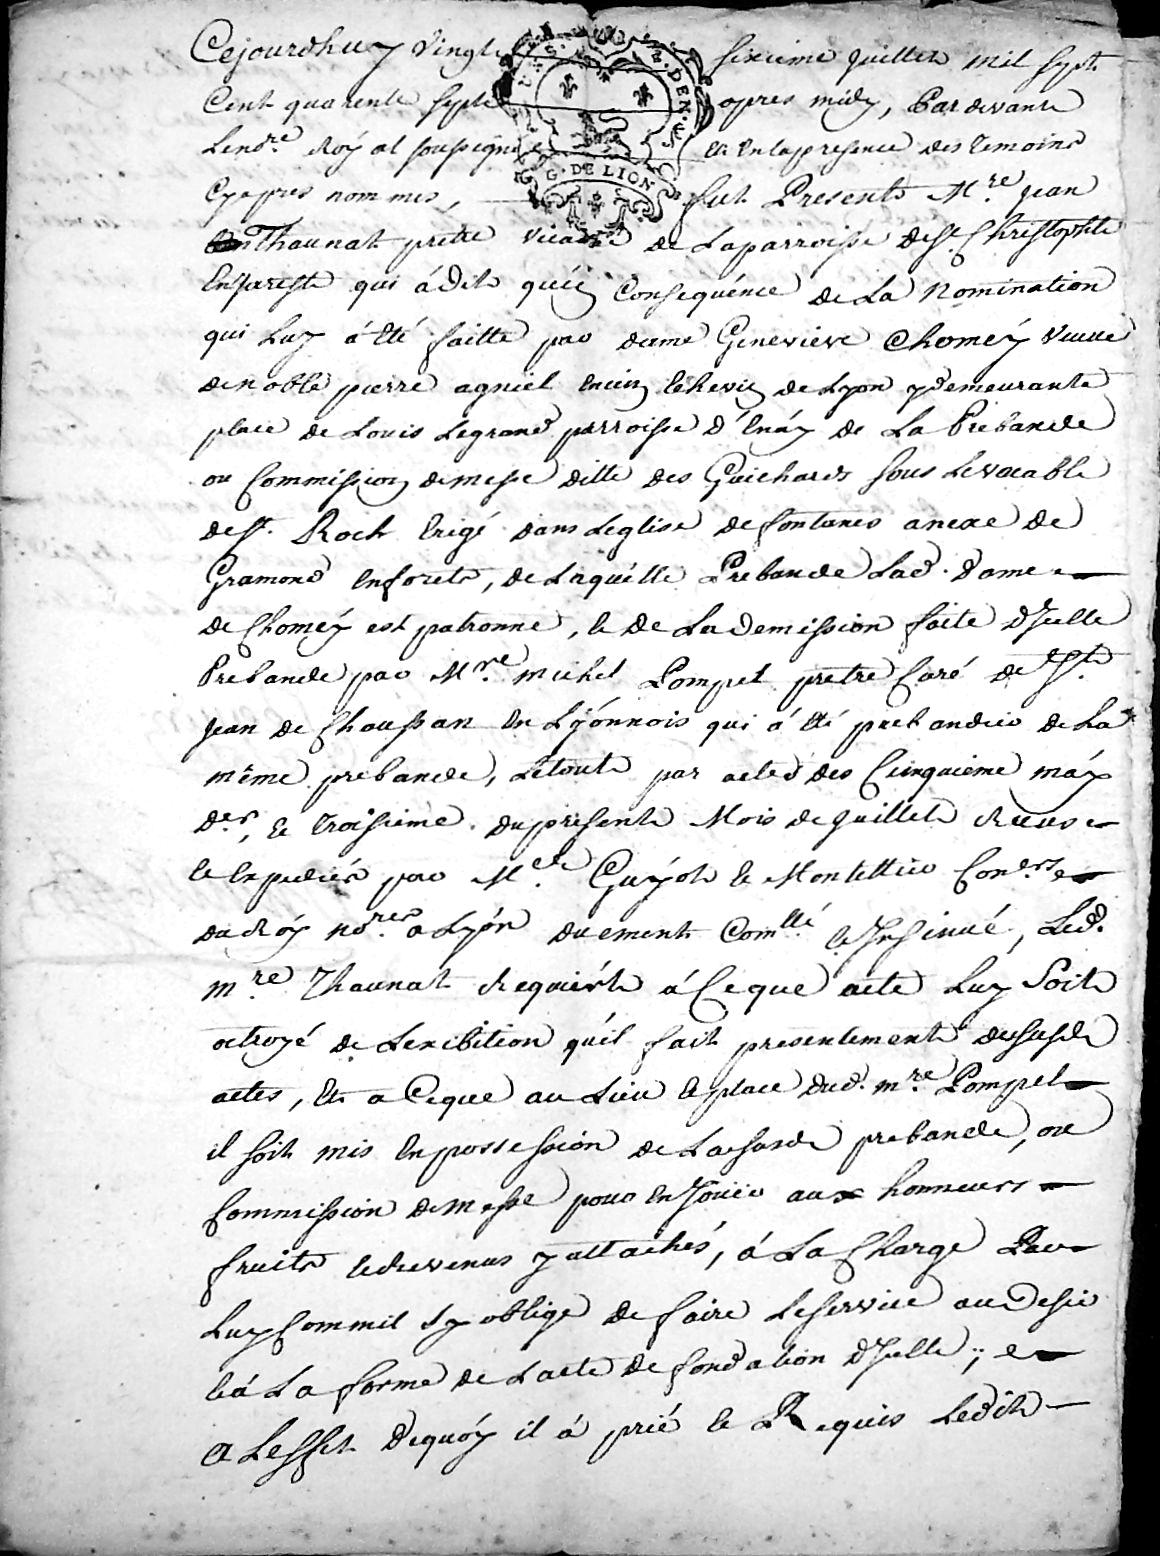 Cejourdhuy vingt sixieme juillet mil sept
Cent quarente sept apres midy, Pardevant
Le no.re Roy.al soussigné et en la presence des temoins
Cyapres nommes, fut Present M.re jean
Thaunat pretre vicaire de Laparroisse de S.t Christophle
Enjarest qui à dit qu'en Consequence de La Nomination
qui Luy à été faitte par dame Genevieve Chomey veuve
de noble pierre agniel encien Echevin de Lyon y demeurante
place de Louis Legrand parroisse d'Enay de La Prebande
ou Commission demesse ditte des Guichards sous Levocable
de S.t Roch Erigé dans Leglise de fontanes anexe de
Gramond enforets, de Laquelle Prebande Lad. Dame
de Chomey est patronne, et de La Demission faite d'Icelle
Prebande par M.re michel Pompet pretre Curé de S.t
Jean de Chaussan en Lyonnois qui à été prebandier de La
même prebande, Letout par actes des Cinquieme may
D.er, et troisieme du present Mois de juillet Recus
et Expediés par M.e Guyot et Montellier Con.ers
du Roy no.res a Lyon duement Com.llé et Insinué, Led.
m.re Thaunat Requiert à Ceque acte Luy Soit
octroyé de Lexibition qu'il fait presentement desusd.
actes, Et a Ceque au Lieu et place dud. m.re Pompet
il soit mis En possession de Lasusd. prebande, ou
Commission demesse pour En Jouir aux honneurs
fruits et Revenus y attachés, à La Charge Par
Luy Comm'il sy oblige de faire Leservice au Desir
et à La forme de Lacte de fondation d'Icelle; et
a Leffet Dequoy il à prié et Requis Ledit
G. DE LION